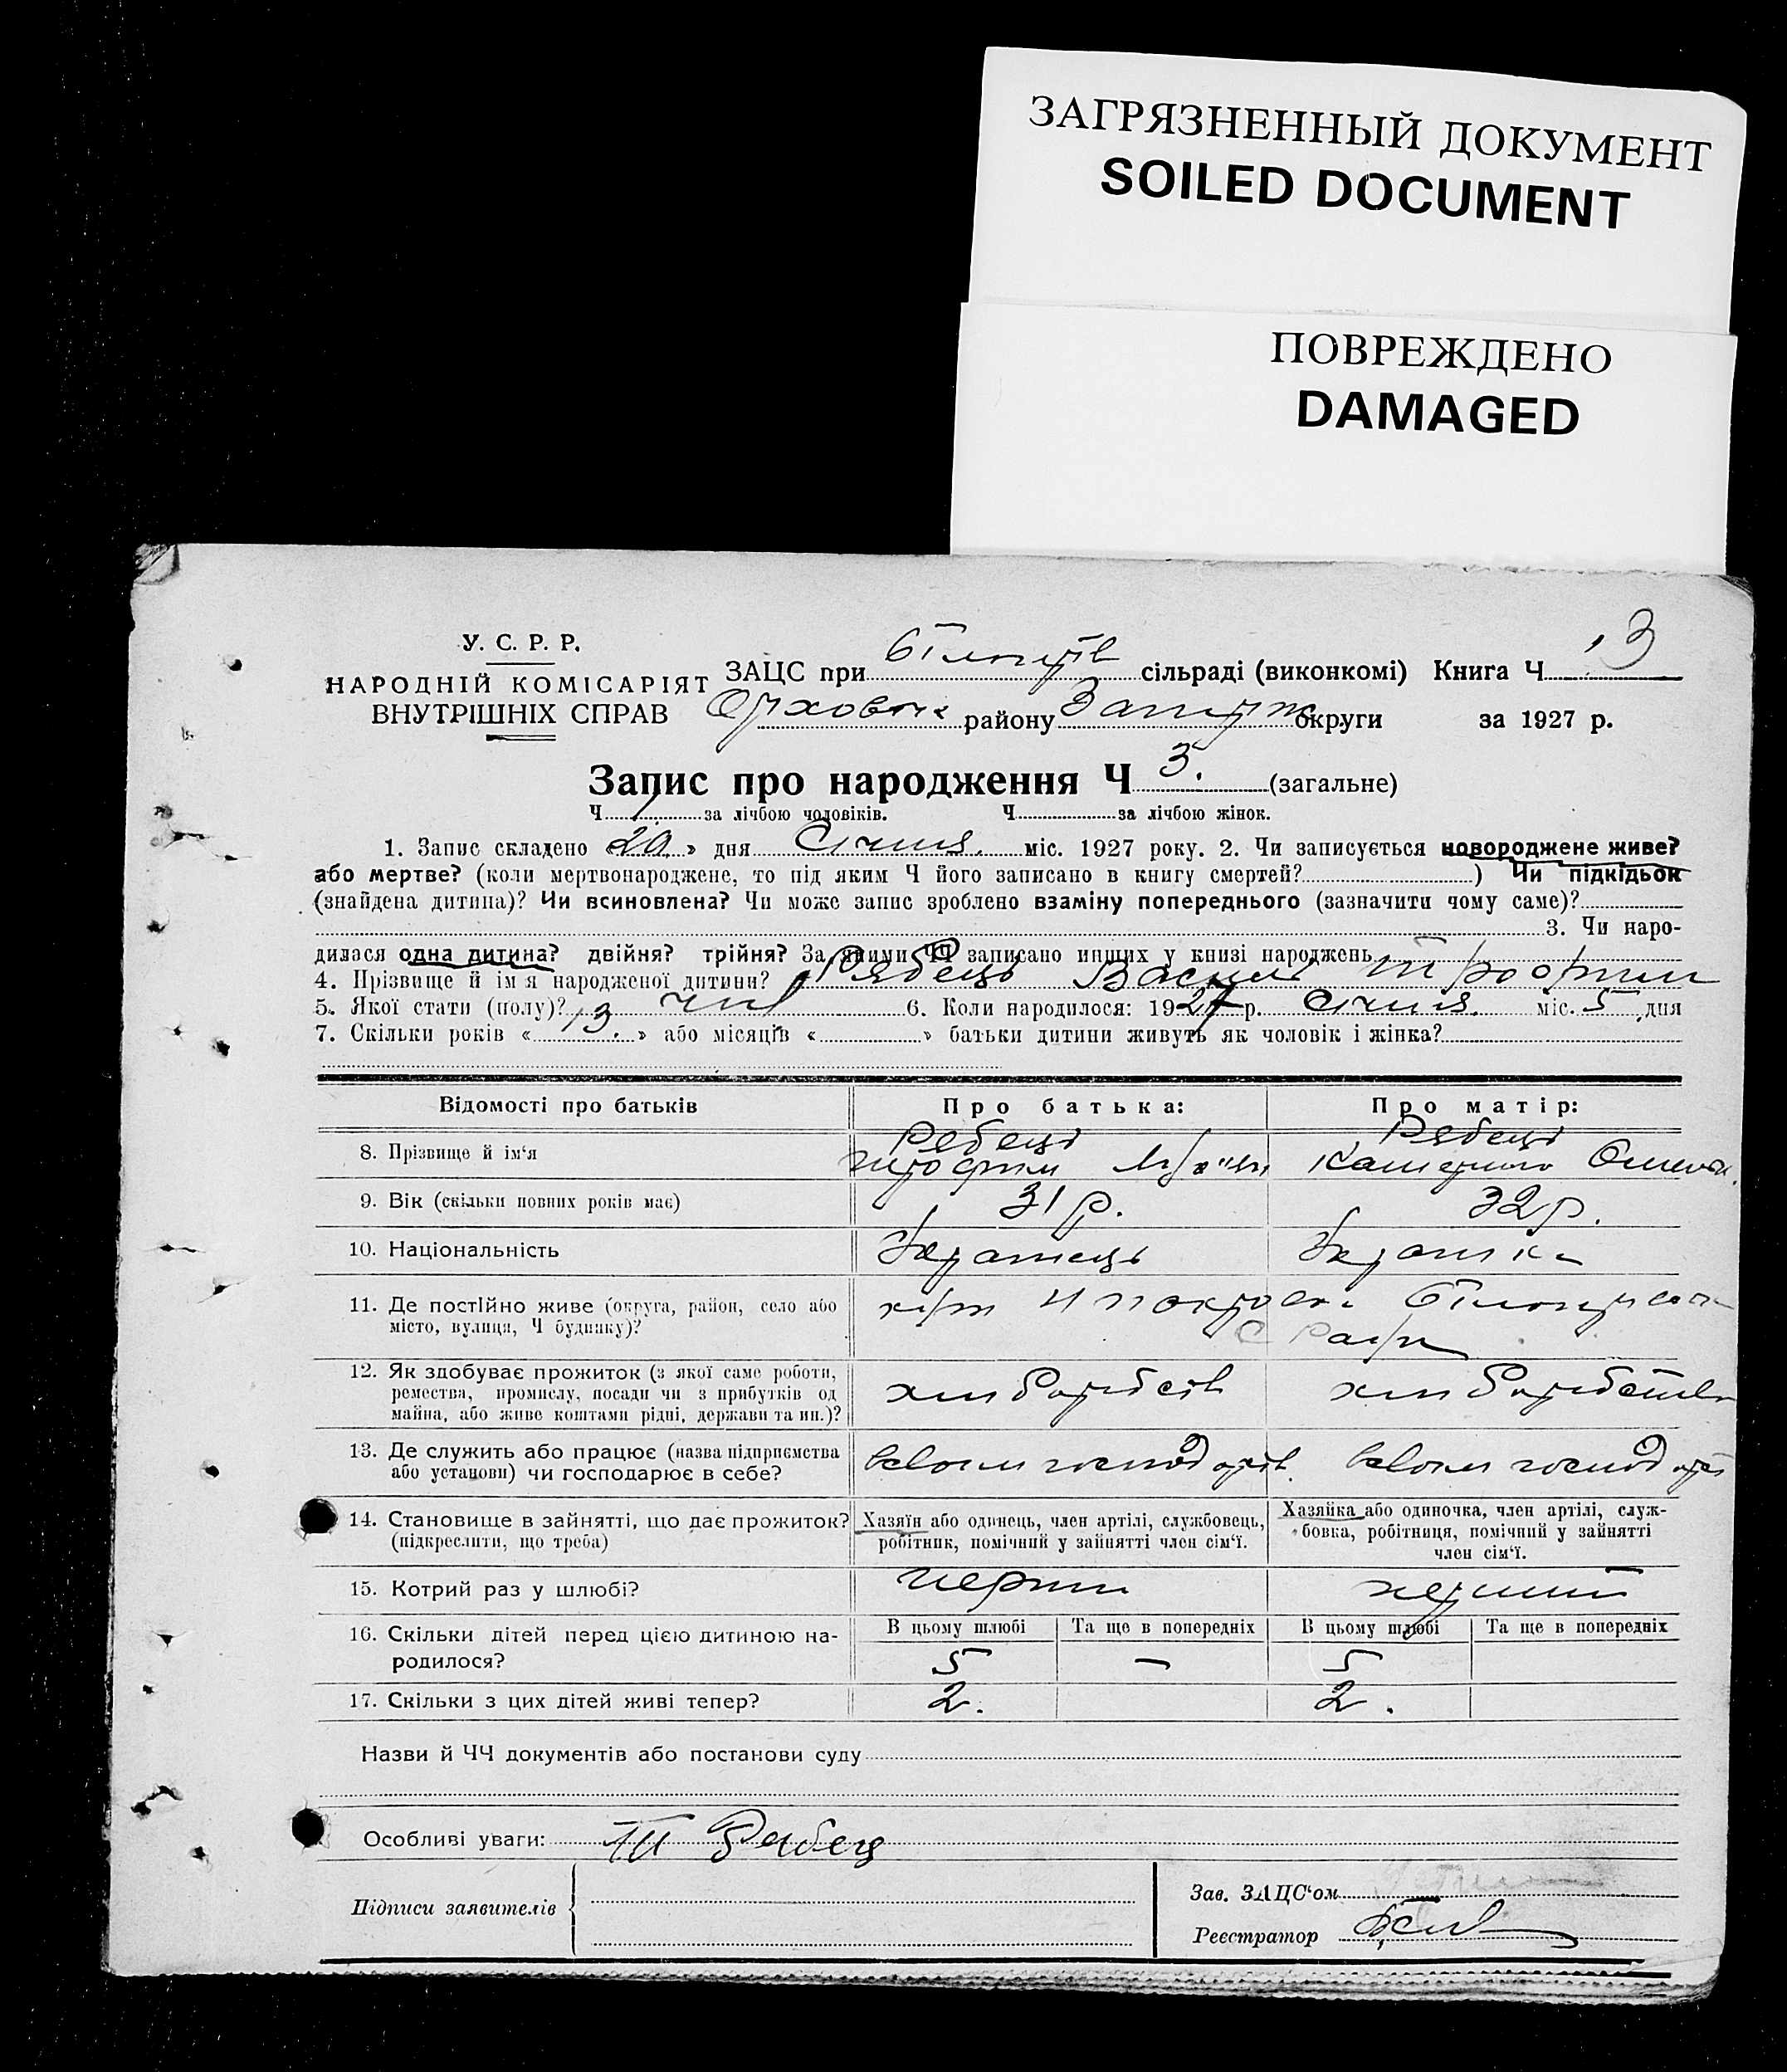 ЗАГРЯЗНЕННЫЙ ДОКУМЕНТ
SOILED DOCUMENT
ПОВРЕЖДЕНО
DAMAGED
У. С. Р. Р.
НАРОДНІЙ КОМІСАРІЯТ
ВНУТРІШНІХ СПРАВ
ЗАЦС при сільраді (виконкомі) Книга Ч 3
району Запоріж округи за 1927 р.
Запис про народження Ч 3. (загальне)
Ч 1 за лічбою чоловіків. Ч за лічбою жінок.
1. Запис складено «20» дня Січня міс. 1927 року. 2. Чи записується новороджене живе?
або мертве? (коли мертвонароджене, то під яким Ч його записано в книгу смертей? ) Чи підкідьок
(знайдена дитина)? Чи всиновлена? Чи може запис зроблено взаміну попереднього (зазначити чому саме)?
3. Чи наро-
дилася одна дитина? двійня? трійня? За якими ЧЧ записано инших у книзі народжень
4. Прізвище й ім'я народженої дитини? Рябець Василь Трофим
5. Якої стати (полу)? чол 6. Коли народилося: 1927 р. Січня міс. 5 дня
7. Скільки років « 13. » або місяців « » батьки дитини живуть як чоловік і жінка?
Відомості про батьків Про батька: Про матір:
8. Прізвище й ім'я Рябець Рябець
Трофим Катерина
9. Вік (скільки повних років має) 31 р. 32 р.
10. Національність Українець Українка
11. Де постійно живе (округа, район, село або
місто, вулиця, Ч будинку)?
12. Як здобуває прожиток (з якої саме роботи,
ремества, промислу, посади чи з прибутків од
майна, або живе коштами рідні, держави та ин.)?
13. Де служить або працює (назва підприємства
або установи) чи господарює в себе?
14. Становище в зайнятті, що дає прожиток?
(підкреслити, що треба)
Хазяїн або одинець, член артілі, службовець,
робітник, помічний у зайнятті член сім'ї.
Хазяйка або одиночка, член артілі, служ-
бовка, робітниця, помічний у зайнятті
член сім'ї.
15. Котрий раз у шлюбі? перший
16. Скільки дітей перед цією дитиною на-
родилося?
В цьому шлюбі Та ще в попередніх В цьому шлюбі Та ще в попередніх
5 — 5
17. Скільки з цих дітей живі тепер? 2. 2.
Назви й ЧЧ документів або постанови суду
Особливі уваги: Рябец
Підписи заявителів
Зав. ЗАЦС'ом
Реєстратор